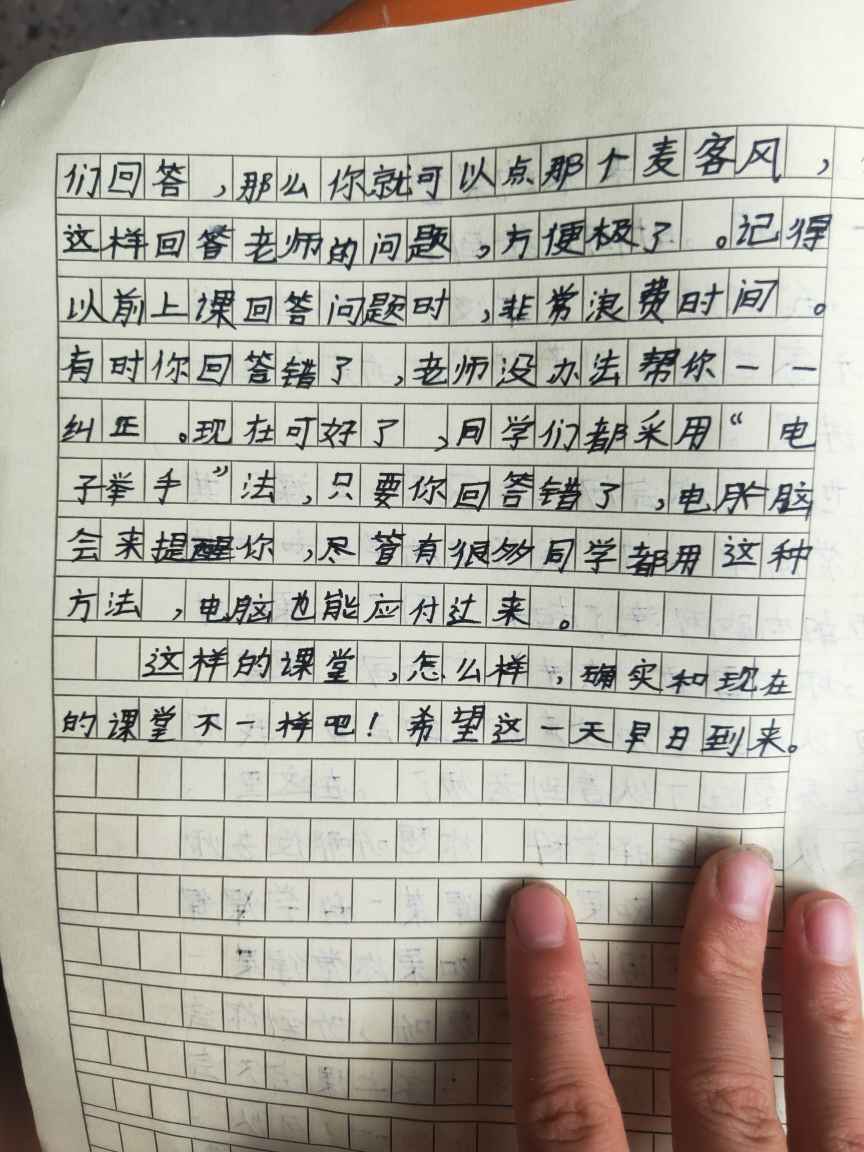 们回答，那么你就可以点那个麦客风，
这样回答老师的问题，方便极了。记得
以前上课回答问题时，非常浪费时间。
有时你回答错了，老师没办法帮你一一
纠正。现在可好了，同学们都采用“电
子举手”法，只要你回答错了，电脑
会来提醒你，尽管有很多同学都用这种
方法，电脑也能应付过来。
这样的课堂，怎么样，确实和现在
的课堂不一样吧！希望这一天早日到来。